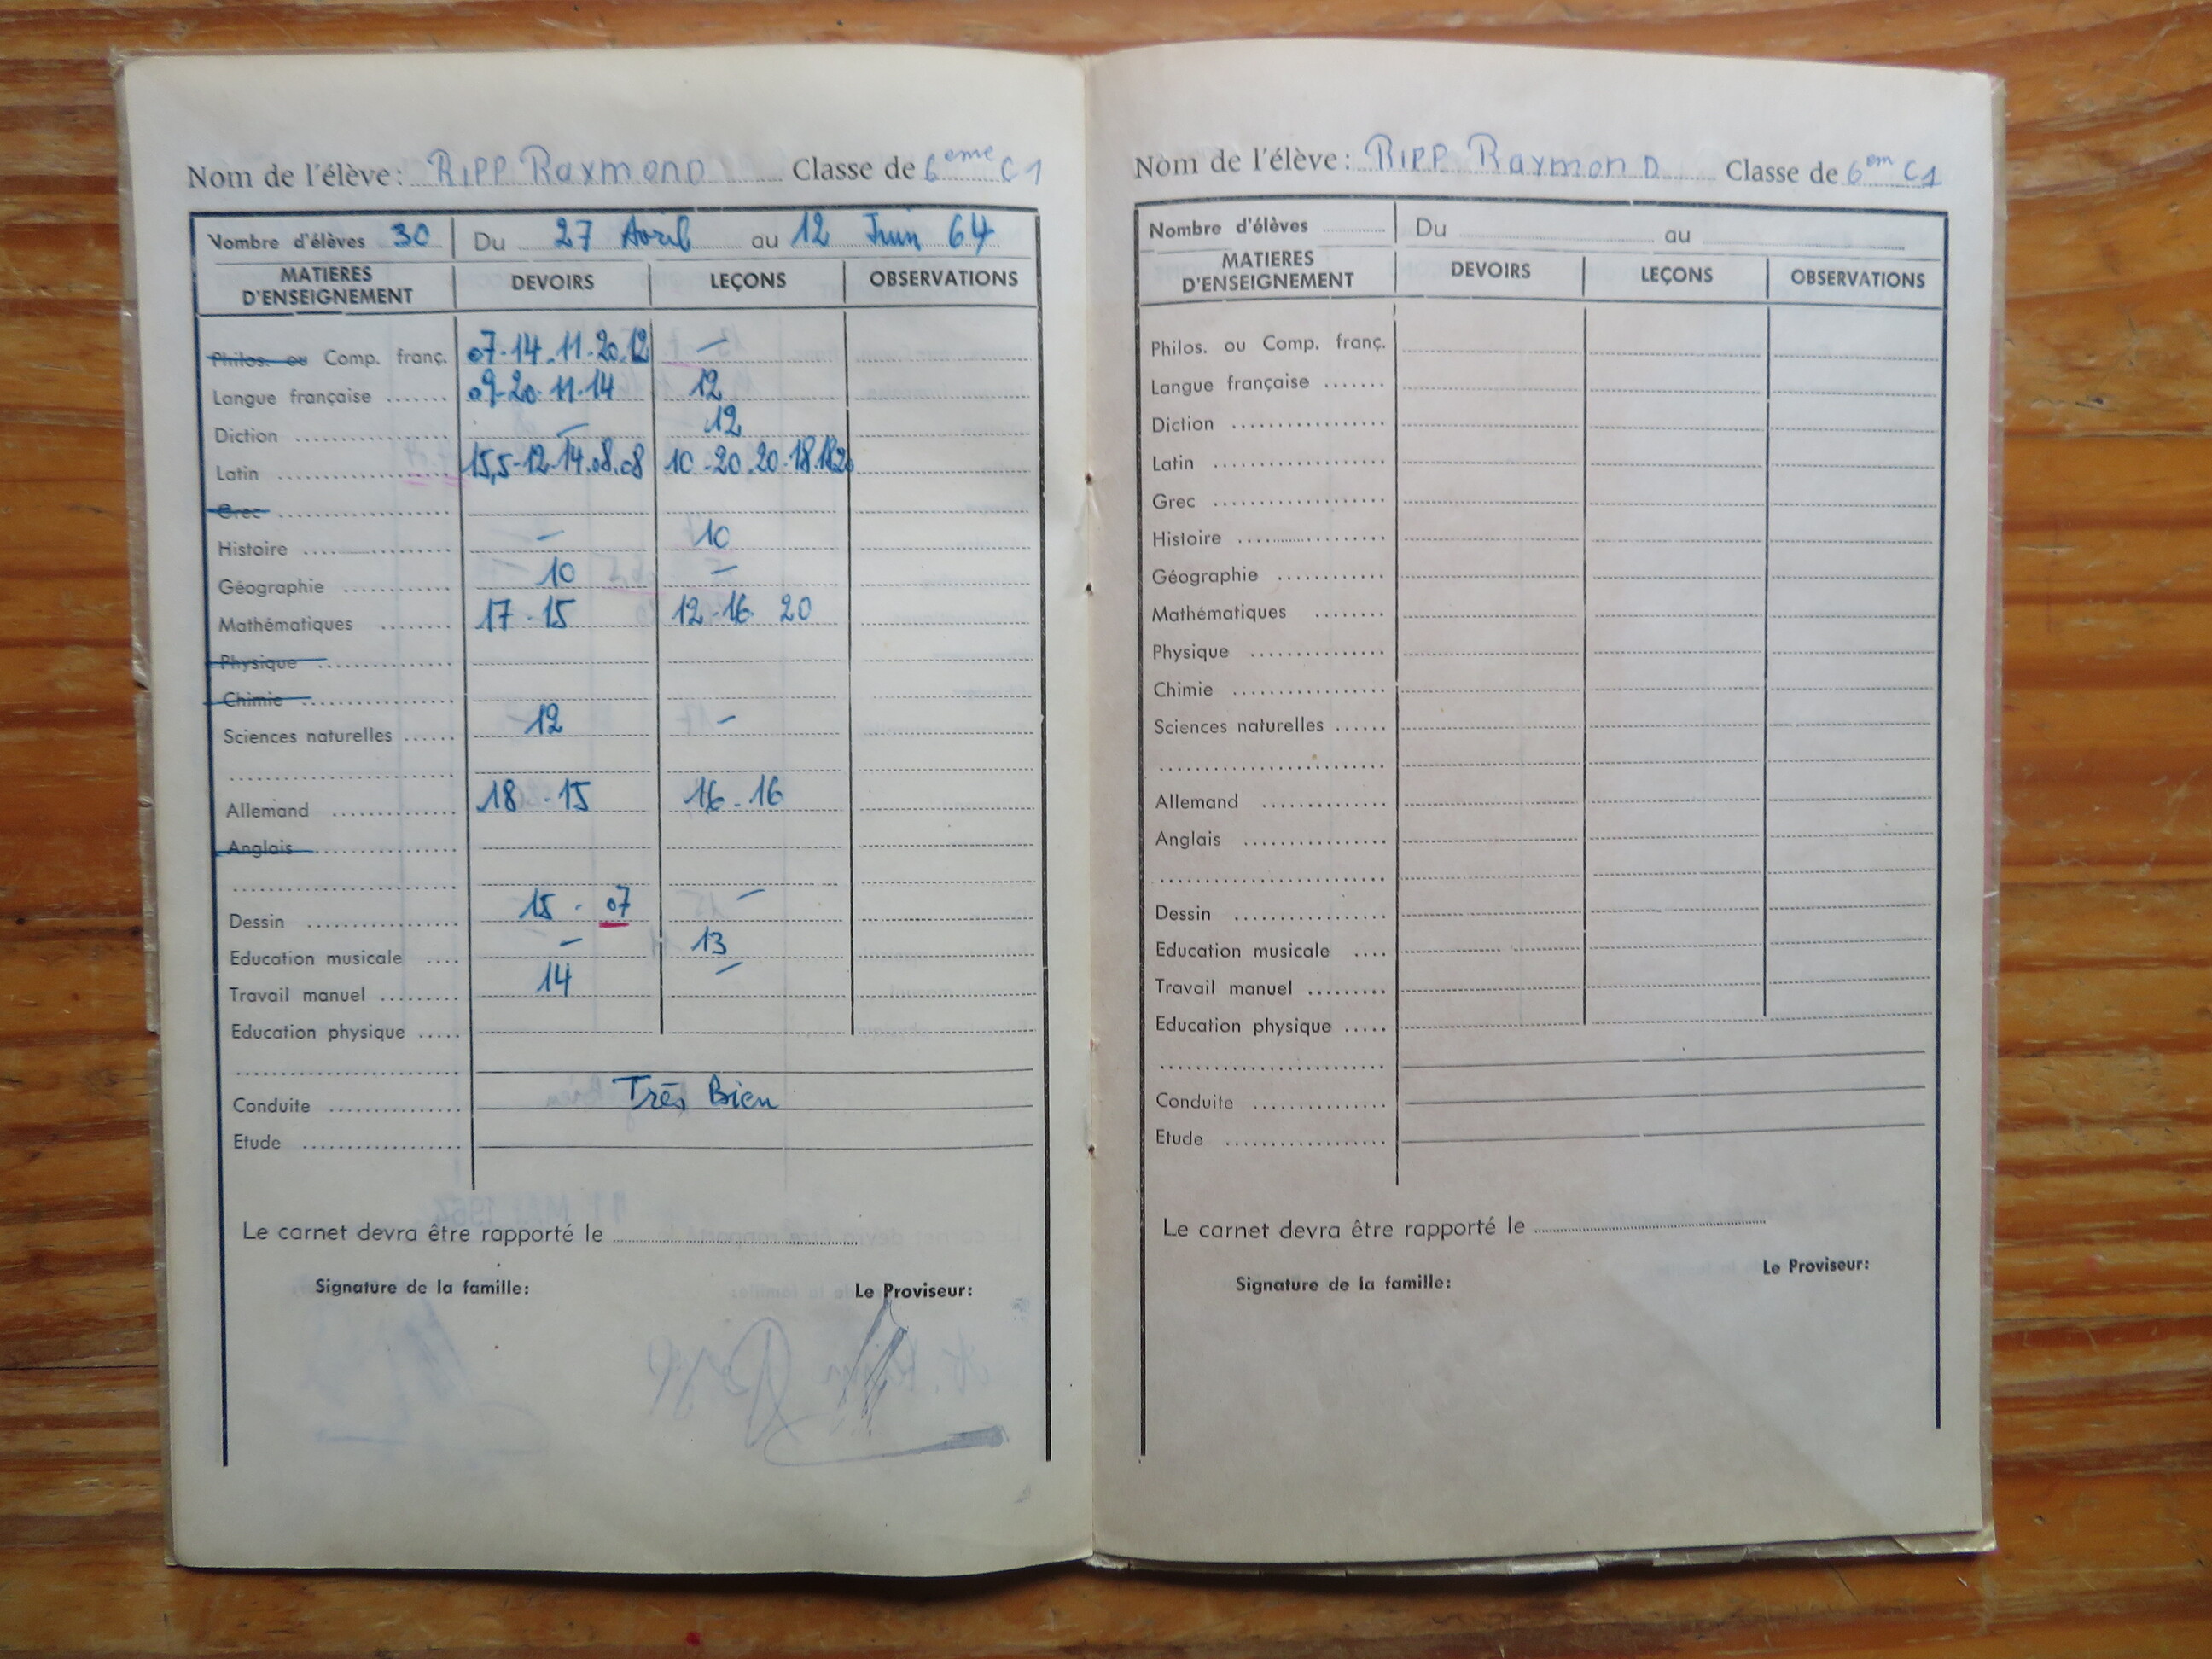 Nom de l'élève: RIPP Raymond Classe de 6eme C1
Nombre d'élèves 30 Du 27 Avril au 12 Juin 64
MATIERES D'ENSEIGNEMENT DEVOIRS LEÇONS OBSERVATIONS
Philos. ou Comp. franç. 07-14-11-20.12 —
Langue française ....... 09-20-11-14 12
Diction ................ — 12
Latin .................. 15,5-12-14.08.08 10-20.20-18.18.20
Grec ...................
Histoire ............... — 10
Géographie ............ 10 —
Mathématiques ........ 17-15 12-16 20
Physique ...............
Chimie .................
Sciences naturelles ...... 12 —
Allemand .............. 18-15 16-16
Anglais ................
Dessin ................. 15-07 —
Education musicale .... — 13
Travail manuel ......... 14 —
Education physique .....
Conduite ............... Très Bien
Etude ..................
Le carnet devra être rapporté le
Signature de la famille: Le Proviseur:
Nom de l'élève: RIPP Raymond Classe de 6em C1
Nombre d'élèves Du au
MATIERES D'ENSEIGNEMENT DEVOIRS LEÇONS OBSERVATIONS
Philos. ou Comp. franç.
Langue française .......
Diction .................
Latin ...................
Grec ...................
Histoire .................
Géographie ............
Mathématiques ........
Physique ...............
Chimie .................
Sciences naturelles ......
Allemand ..............
Anglais ................
Dessin .................
Education musicale ....
Travail manuel .........
Education physique .....
Conduite ...............
Etude ..................
Le carnet devra être rapporté le
Signature de la famille: Le Proviseur: